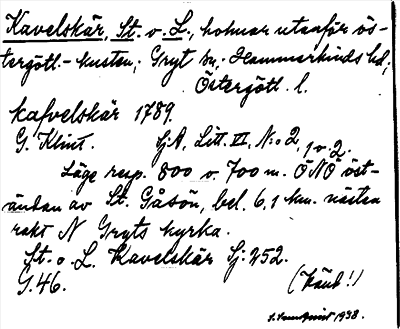 Kavelskär, St. o. L., holmar utanför ös-
tergötl.-kusten; Gryt sn, Hammarkinds hd,
Östergötl. l.
kafvelskär 1789.
G. Klint. SjA, Litt. VI, N:o 2, 1 o. 2.
Läge resp. 800 o. 700 m. ÖNÖ öst-
ändan av St. Gåsön, bel. 6,1 km. nästan
rakt N Gryts kyrka.
St. o. L. Kavelskär Sj: 252.
G. 46.
(Känt!)
1938.